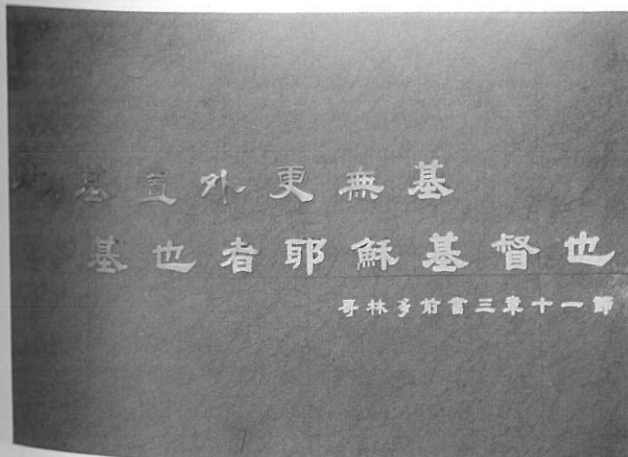 基置外更無基
基也者耶穌基督也
哥林多前書三章十一節